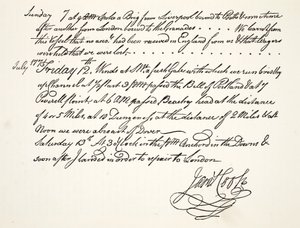 Sunday 7 at 9 AM spoke a Brig from Liverpool bound to Porto & soon after
another from London bound to the Granades. We learnt from
this vessel that no acct. had been received in England from us & that Wagers
were held that we were lost.
July 1771 Friday 12th Winds at SW a fresh gale with which we run briskly
up Channel at 3 PM passed the Bill of Portland at 7
Peverell Point at 6 AM passed Beachy head at the distance
of 4 or 5 Miles at 10 Dungeness at the distance of 2 Miles & at
Noon we were abreast of Dover
Saturday 13th At 3 oClock in the PM anchor'd in the Downs &
soon after I landed in order to repair to London
Jams Cook